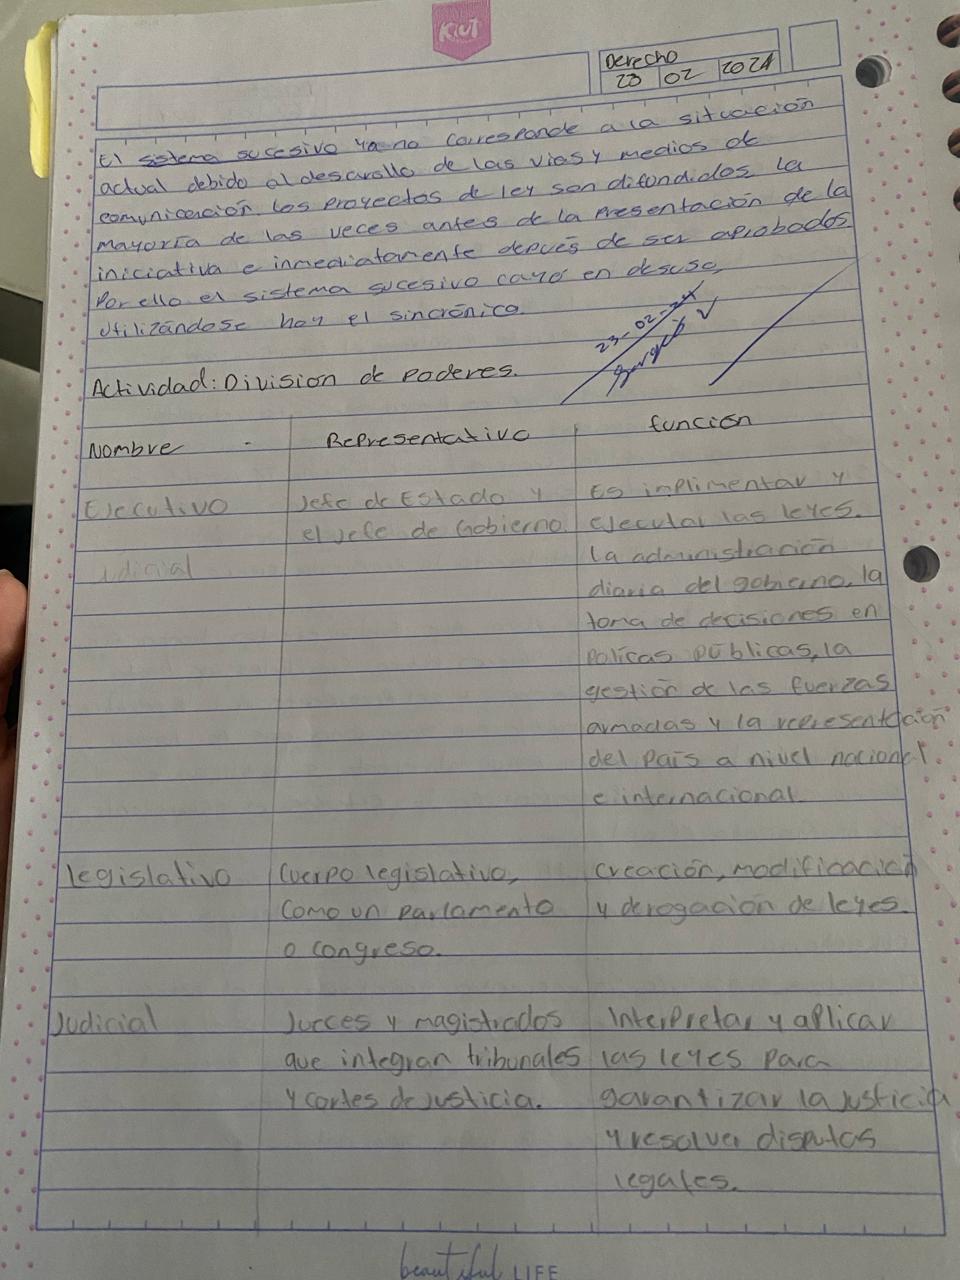 KIUT
Derecho
23 02 2024
El sistema sucesivo ya no corresponde a la situación
actual debido al desarollo de las vias y medios de
comunicación. los proyectos de ley son difundidos la
mayoría de las veces antes de la presentación de la
iniciativa e inmediatamente depues de ser aprobados.
Por ello el sistema sucesivo cayo en desuso,
utilizándose hoy el sincrónico.
23-02-24
Actividad: Division de poderes.
Nombre Representativo función
Ejecutivo Jefe de Estado y Es inplimentar y
el Jefe de Gobierno. ejecutar las leyes.
udicial la administración
diaria del gobierno, la
toma de decisiones en
políicas públicas, la
gestión de las fuerzas
armadas y la representación
del país a nivel nacional
e internacional.
Legislativo Cuerpo legislativo, creación, modificación
como un parlamento y derogación de leyes.
o congreso.
Judicial Jueces y magistrados Interpretar y aplicar
que integran tribunales las leyes para
y cortes de justicia. garantizar la justicia
y resolver disputas
legales.
beautiful LIFE